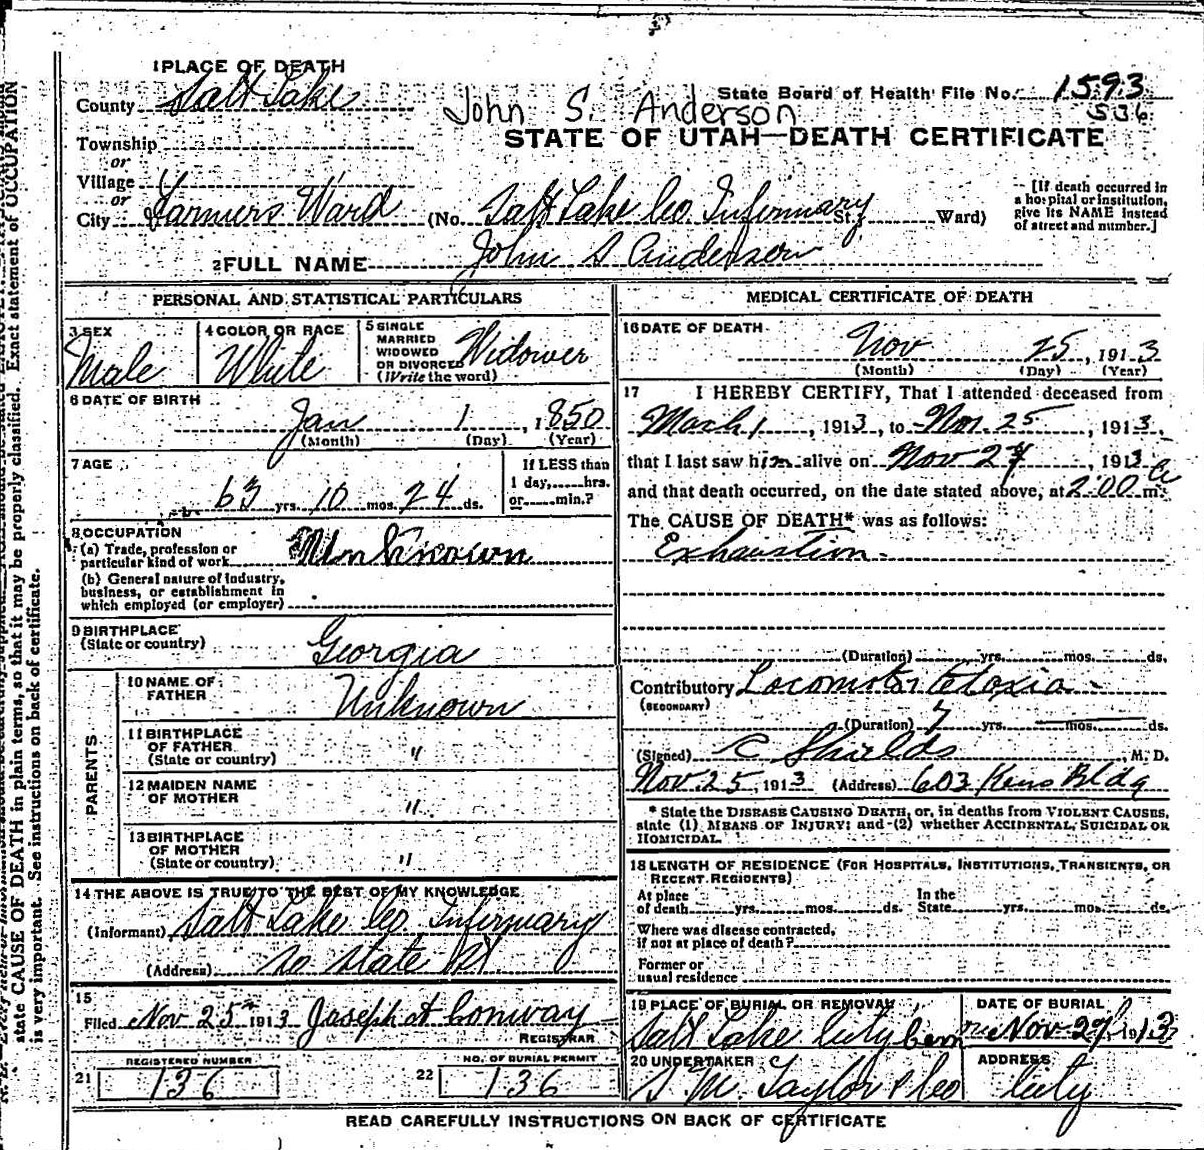 1 PLACE OF DEATH
County Salt Lake
State Board of Health File No. 1593
536
John S. Anderson
STATE OF UTAH—DEATH CERTIFICATE
Township
or
Village
or
City Farmers Ward (No. Salt Lake Co. Infirmary St.; Ward)
[If death occurred in a hospital or institution, give its NAME instead of street and number.]
2 FULL NAME John S Anderson
PERSONAL AND STATISTICAL PARTICULARS
3 SEX
Male
4 COLOR OR RACE
White
5 SINGLE
MARRIED
WIDOWED
OR DIVORCED
(Write the word)
Widower
6 DATE OF BIRTH
Jan 1, 1850
(Month) (Day) (Year)
7 AGE
63 yrs. 10 mos. 24 ds.
If LESS than
1 day,......hrs.
or......min.?
8 OCCUPATION
(a) Trade, profession or
particular kind of work Unknown
(b) General nature of industry,
business, or establishment in
which employed (or employer)
9 BIRTHPLACE
(State or country)
Georgia
PARENTS
10 NAME OF
FATHER
Unknown
11 BIRTHPLACE
OF FATHER
(State or country)
"
12 MAIDEN NAME
OF MOTHER
"
13 BIRTHPLACE
OF MOTHER
(State or country)
"
14 THE ABOVE IS TRUE TO THE BEST OF MY KNOWLEDGE
(Informant) Salt Lake Co. Infirmary
(Address) So State St.
15
Filed Nov 25th 1913 Joseph A Conway
REGISTRAR
REGISTERED NUMBER
21 136
NO. OF BURIAL PERMIT
22 136
MEDICAL CERTIFICATE OF DEATH
16 DATE OF DEATH
Nov 25, 1913
(Month) (Day) (Year)
17 I HEREBY CERTIFY, That I attended deceased from
Mach 1, 1913, to Nov. 25, 1913,
that I last saw him alive on Nov 24, 1913
and that death occurred, on the date stated above, at 2:00 a m.
The CAUSE OF DEATH* was as follows:
Exhaustion.
(Duration) yrs. mos. ds.
Contributory Locomotor Ataxia
(SECONDARY)
(Duration) 7 yrs. mos. ds.
(Signed) C Shields M. D.
Nov. 25, 1913 (Address) 603 Kens Bldg
* State the DISEASE CAUSING DEATH, or, in deaths from VIOLENT CAUSES,
state (1) MEANS OF INJURY; and (2) whether ACCIDENTAL, SUICIDAL OR
HOMICIDAL.
18 LENGTH OF RESIDENCE (FOR HOSPITALS, INSTITUTIONS, TRANSIENTS, OR
RECENT RESIDENTS)
At place In the
of death yrs. mos. ds. State yrs. mos. ds.
Where was disease contracted,
if not at place of death?
Former or
usual residence
19 PLACE OF BURIAL OR REMOVAL
Salt Lake City Cem
DATE OF BURIAL
Nov. 27, 1913
20 UNDERTAKER
S. M. Taylor & Co
ADDRESS
City
READ CAREFULLY INSTRUCTIONS ON BACK OF CERTIFICATE
state CAUSE OF DEATH in plain terms, so that it may be properly classified. Exact statement of OCCUPATION
is very important. See instructions on back of certificate.